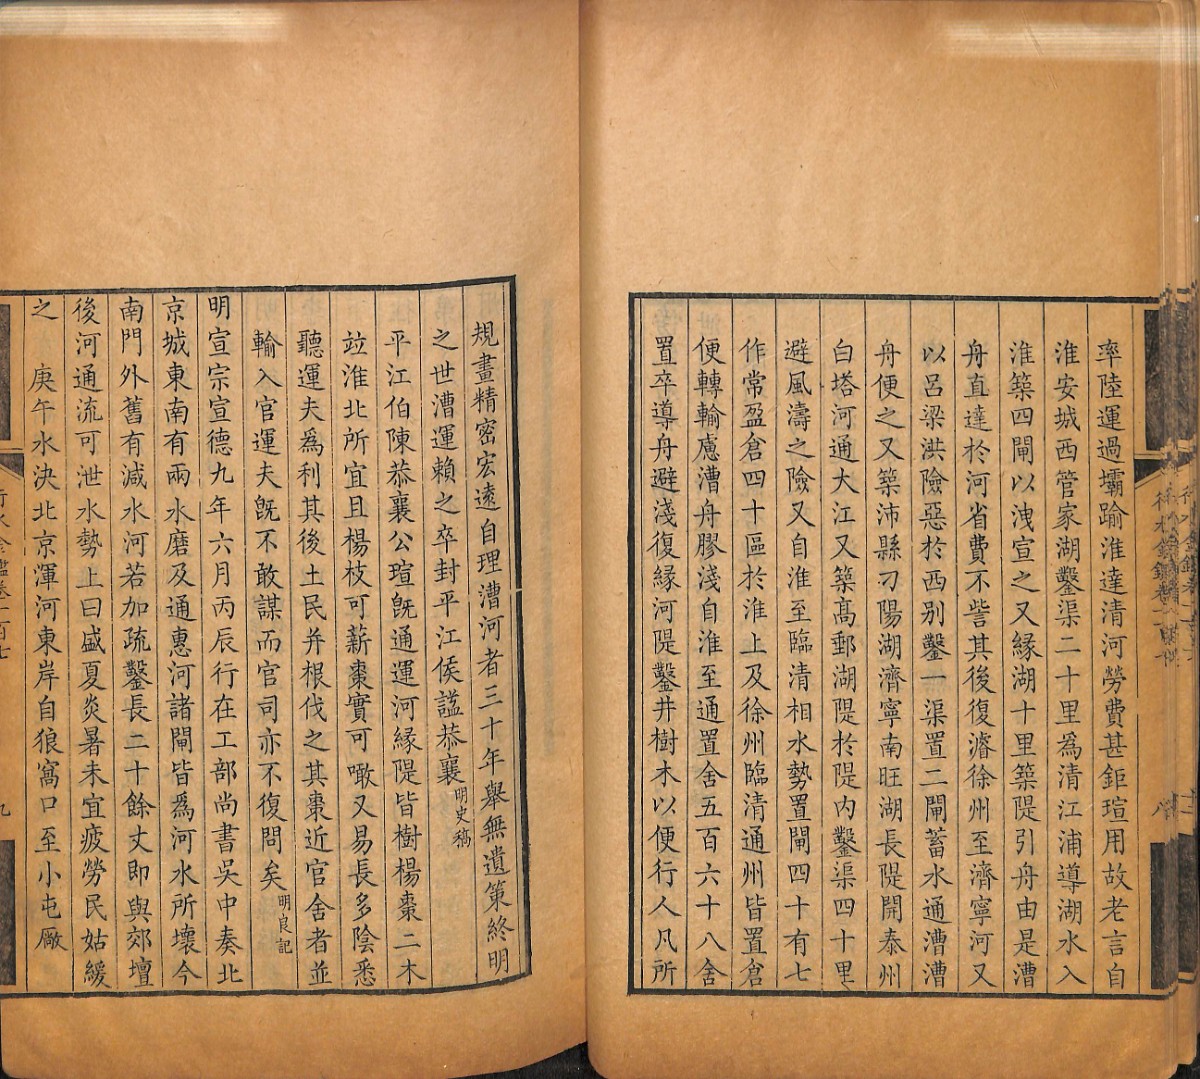 率陸運過壩踰淮達清河勞費甚鉅瑄用故老言自
淮安城西管家湖鑿渠二十里爲清江浦導湖水入
淮築四閘以洩宣之又縁湖十里築隄引舟由是漕
舟直達於河省費不訾其後復濬徐州至濟寧河又
以呂梁洪險惡於西别鑿一渠置二閘蓄水通漕漕
舟便之又築沛縣刁陽湖濟寧南旺湖長隄開泰州
白塔河通大江又築髙郵湖隄於隄内鑿渠四十里
避風濤之險又自淮至臨清相水勢置閘四十有七
作常盈倉四十區於淮上及徐州臨清通州皆置倉
便轉輸慮漕舟膠淺自淮至通置舍五百六十八舍
置卒導舟避淺復縁河隄鑿井樹木以便行人凡所
規畫精密宏遠自理漕河者三十年舉無遺策終明
之世漕運賴之卒封平江侯諡恭襄明史稿
平江伯陳恭襄公瑄旣通運河縁隄皆樹楊棗二木
竝淮北所宜且楊枝可薪棗實可噉又易長多陰悉
聽運夫爲利其後土民并根伐之其棗近官舍者並
輸入官運夫旣不敢謀而官司亦不復問矣明良記
明宣宗宣德九年六月丙辰行在工部尚書吳中奏北
京城東南有兩水磨及通惠河諸閘皆爲河水所壞今
南門外舊有減水河若加疏鑿長二十餘丈即與郊壇
後河通流可泄水勢上曰盛夏炎暑未宜疲勞民姑緩
之 庚午水決北京渾河東岸自狼窩口至小屯厰
行水金鑑卷一百七
九